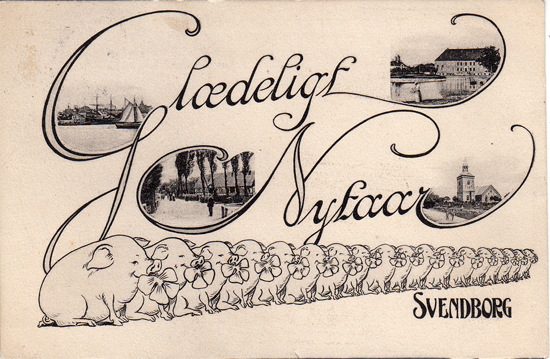 Glædeligt
Nytaar
SVENDBORG